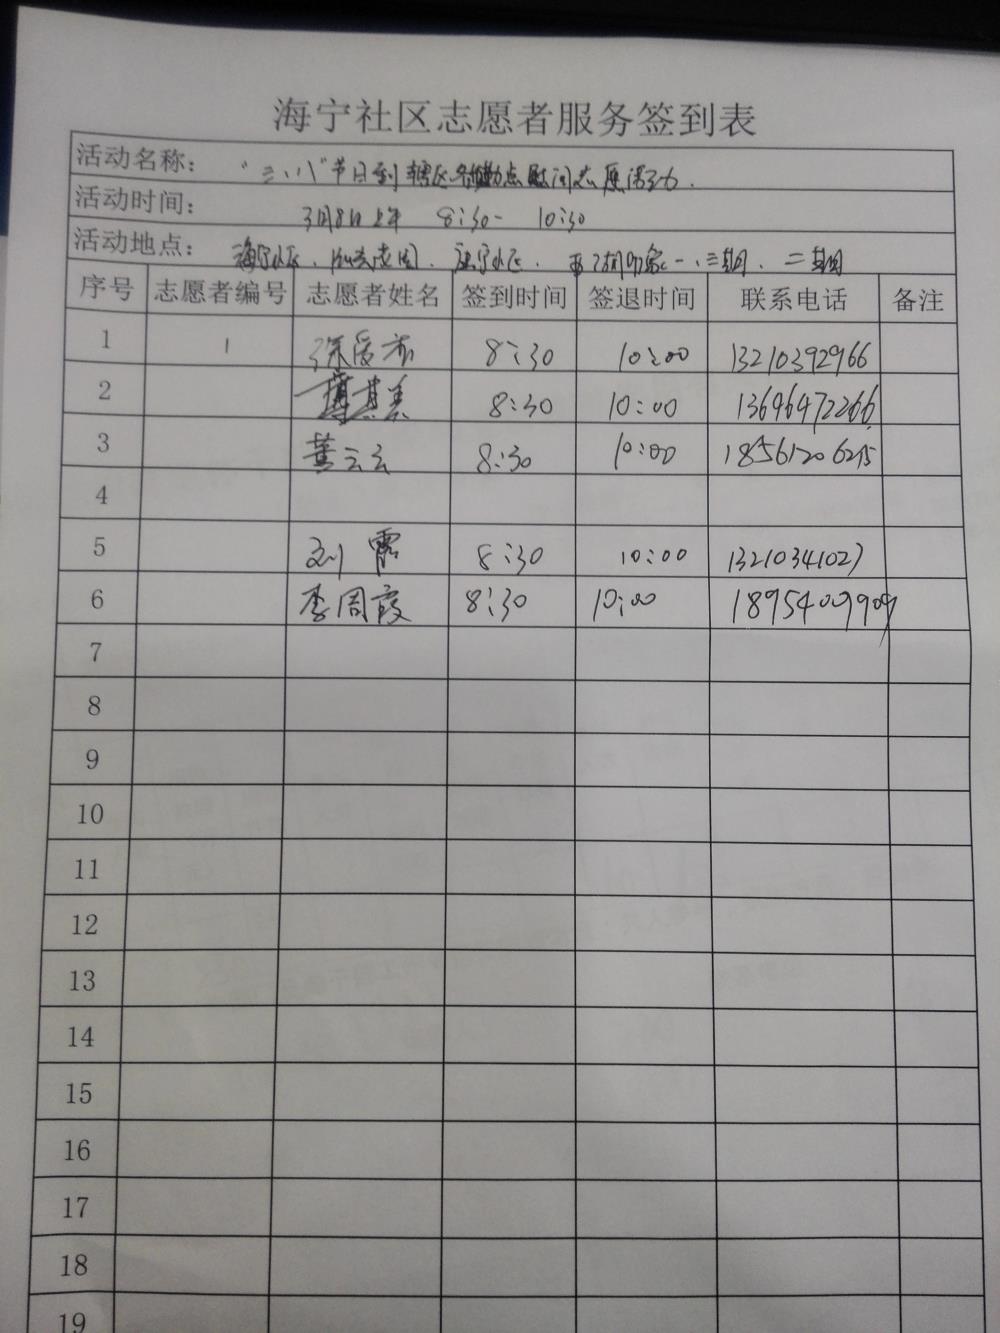 海宁社区志愿者服务签到表
活动名称： "三.八"节日到辖区各执勤点慰问志愿活动.
活动时间： 3月8日上午 8:30- 10:30
活动地点： 海宁小区、 一、三期、二期
序号 志愿者编号 志愿者姓名 签到时间 签退时间 联系电话 备注
1 1 8:30 10:00 13210392966
2 8:30 10:00 13696472266
3 黄云云 8:30 10:00 18561206215
4
5 刘霞 8:30 10:00 13210341027
6 李周霞 8:30 10:00 18954009909
7
8
9
10
11
12
13
14
15
16
17
18
19